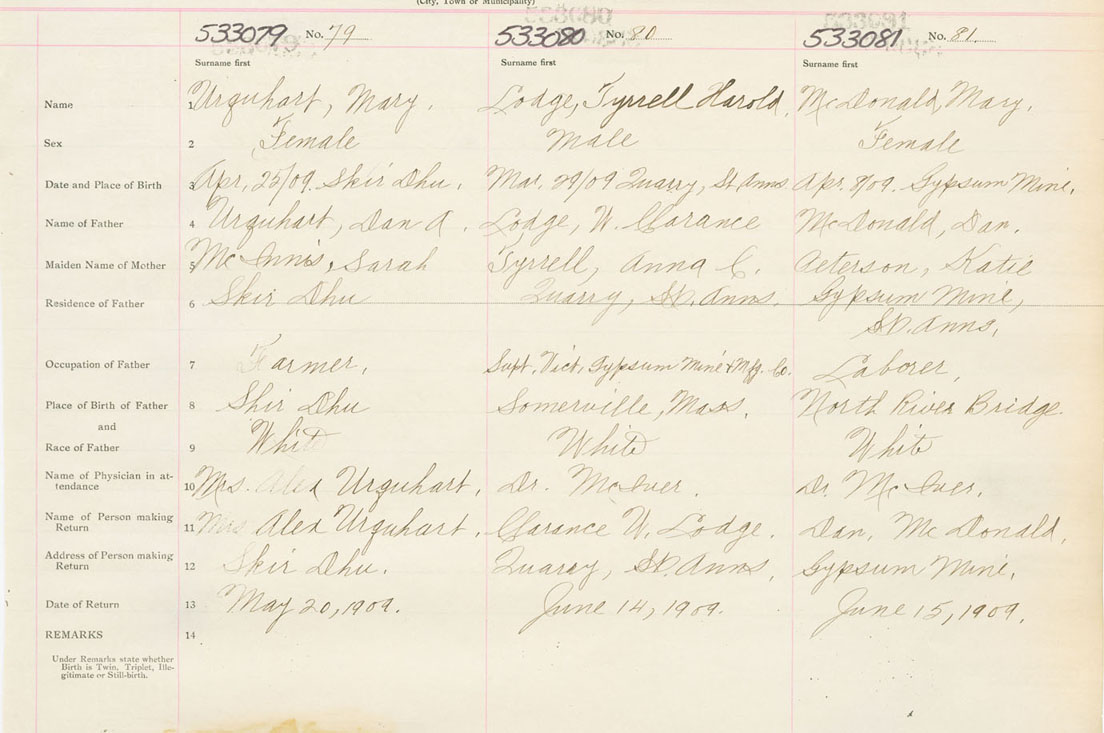 (City, Town or Municipality)
533079 No. 79 533080 No. 80 533081 No. 81
Surname first Surname first Surname first
Name 1 Urquhart, Mary. Lodge, Tyrrell Harold. McDonald, Mary.
Sex 2 Female Male Female
Date and Place of Birth 3 Apr, 25/09. Skir Dhu. Mar. 29/09 Quarry, St Anns Apr. 8/09. Gypsum Mine.
Name of Father 4 Urquhart, Dan A. Lodge, W. Clarance McDonald, Dan.
Maiden Name of Mother 5 McInnis, Sarah Tyrrell, Anna C. Peterson, Katie
Residence of Father 6 Skir Dhu Quarry, St. Anns. Gypsum Mine,
St. Anns.
Occupation of Father 7 Farmer, Supt. Vict. Gypsum Mine & Mfg. Co. Laborer,
Place of Birth of Father 8 Skir Dhu Somerville, Mass. North River Bridge.
and
Race of Father 9 White White White
Name of Physician in at-
tendance 10 Mrs. Alex Urquhart. Dr. McIver. Dr. McIver.
Name of Person making
Return 11 Mrs Alex Urquhart. Clarance W. Lodge. Dan. McDonald,
Address of Person making
Return 12 Skir Dhu. Quarry, St. Anns, Gypsum Mine.
Date of Return 13 May 20, 1909. June 14, 1909. June 15, 1909.
REMARKS 14
Under Remarks state whether
Birth is Twin, Triplet, Ille-
gitimate or Still-birth.